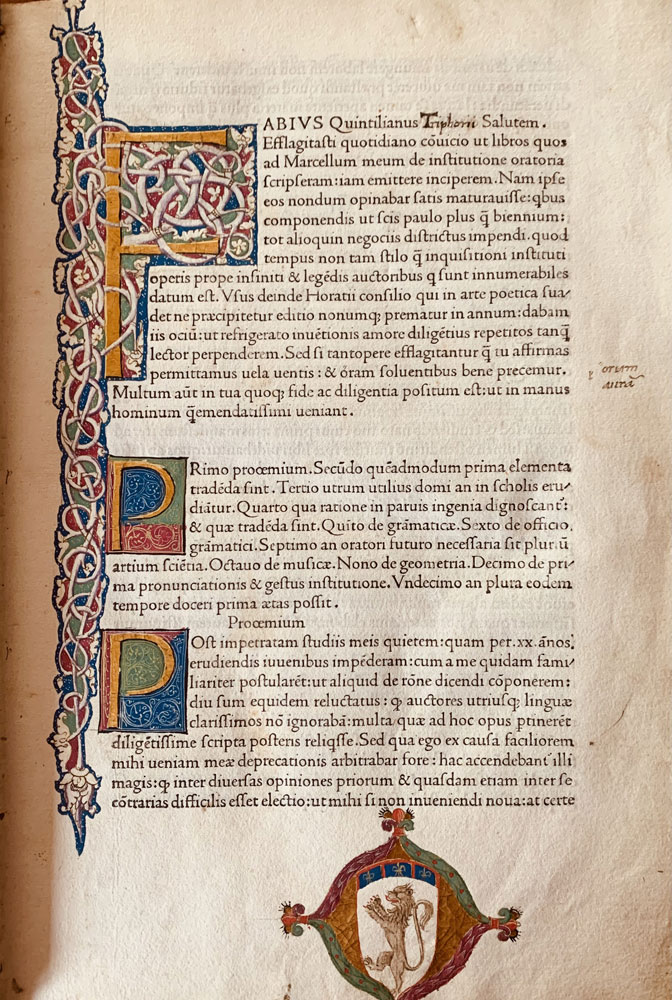 FABIVS Quintilianus Triphoni Salutem.
Efflagitasti quotidiano cōuicio ut libros quos
ad Marcellum meum de institutione oratoria
scripseram: iam emittere inciperem. Nam ipse
eos nondum opinabar satis maturauisse: qbus
componendis ut scis paulo plus q̄ biennium:
tot alioquin negociis districtus impendi. quod
tempus non tam stilo q̄ inquisitioni instituti
operis prope infiniti & legēdis auctoribus q sunt innumerabiles
datum est. Vsus deinde Horatii consilio qui in arte poetica sua/
det ne præcipitetur editio nonumq; prematur in annum: dabam
iis ociū: ut refrigerato inuētionis amore diligētius repetitos tanq̄
lector perpenderem. Sed si tantopere efflagitantur q̄ tu affirmas
permittamus uela uentis: & oram soluentibus bene precemur.
Multum aūt in tua quoq; fide ac diligentia positum est: ut in manus
hominum q̄emendatissimi ueniant.
PRimo proœmium. Secūdo quēadmodum prima elementa
tradēda sint. Tertio utrum utilius domi an in scholis eru/
diātur. Quarto qua ratione in paruis ingenia dignoscant̄:
& quæ tradēda sint. Quīto de grāmaticæ. Sexto de officio,
grāmatici. Septimo an oratori futuro necessaria sit plurīū
artium sciētia. Octauo de musicæ. Nono de geometria. Decimo de pri/
ma pronunciationis & gestus institutione. Vndecimo an plura eodem
tempore doceri prima ætas possit.
Proœmium
POst impetratam studiis meis quietem: quam per .xx. ānos,
erudiendis iuuenibus impēderam: cum a me quidam fami/
liariter postularēt: ut aliquid de rōne dicendi cōponerem:
diu sum equidem reluctatus: qp auctores utriusq; linguæ
clarissimos nō ignorabā: multa quæ ad hoc opus ptinerēt
diligētissime scripta posteris reliqsse. Sed qua ego ex causa faciliorem
mihi ueniam meæ deprecationis arbitrabar fore: hac accendebant̄ illi
magis: qp inter diuersas opiniones priorum & quasdam etiam inter se
cōtrarias difficilis esset electio: ut mihi si non inueniendi noua: at certe